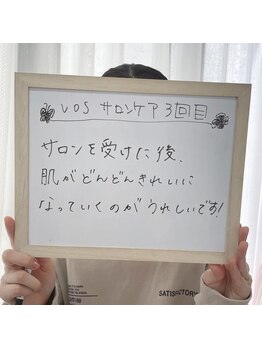 VOS サロンケア 3回目
サロンを受けた後、
肌がどんどんきれいに
なっていくのがうれしいです!
SATISFACTORY